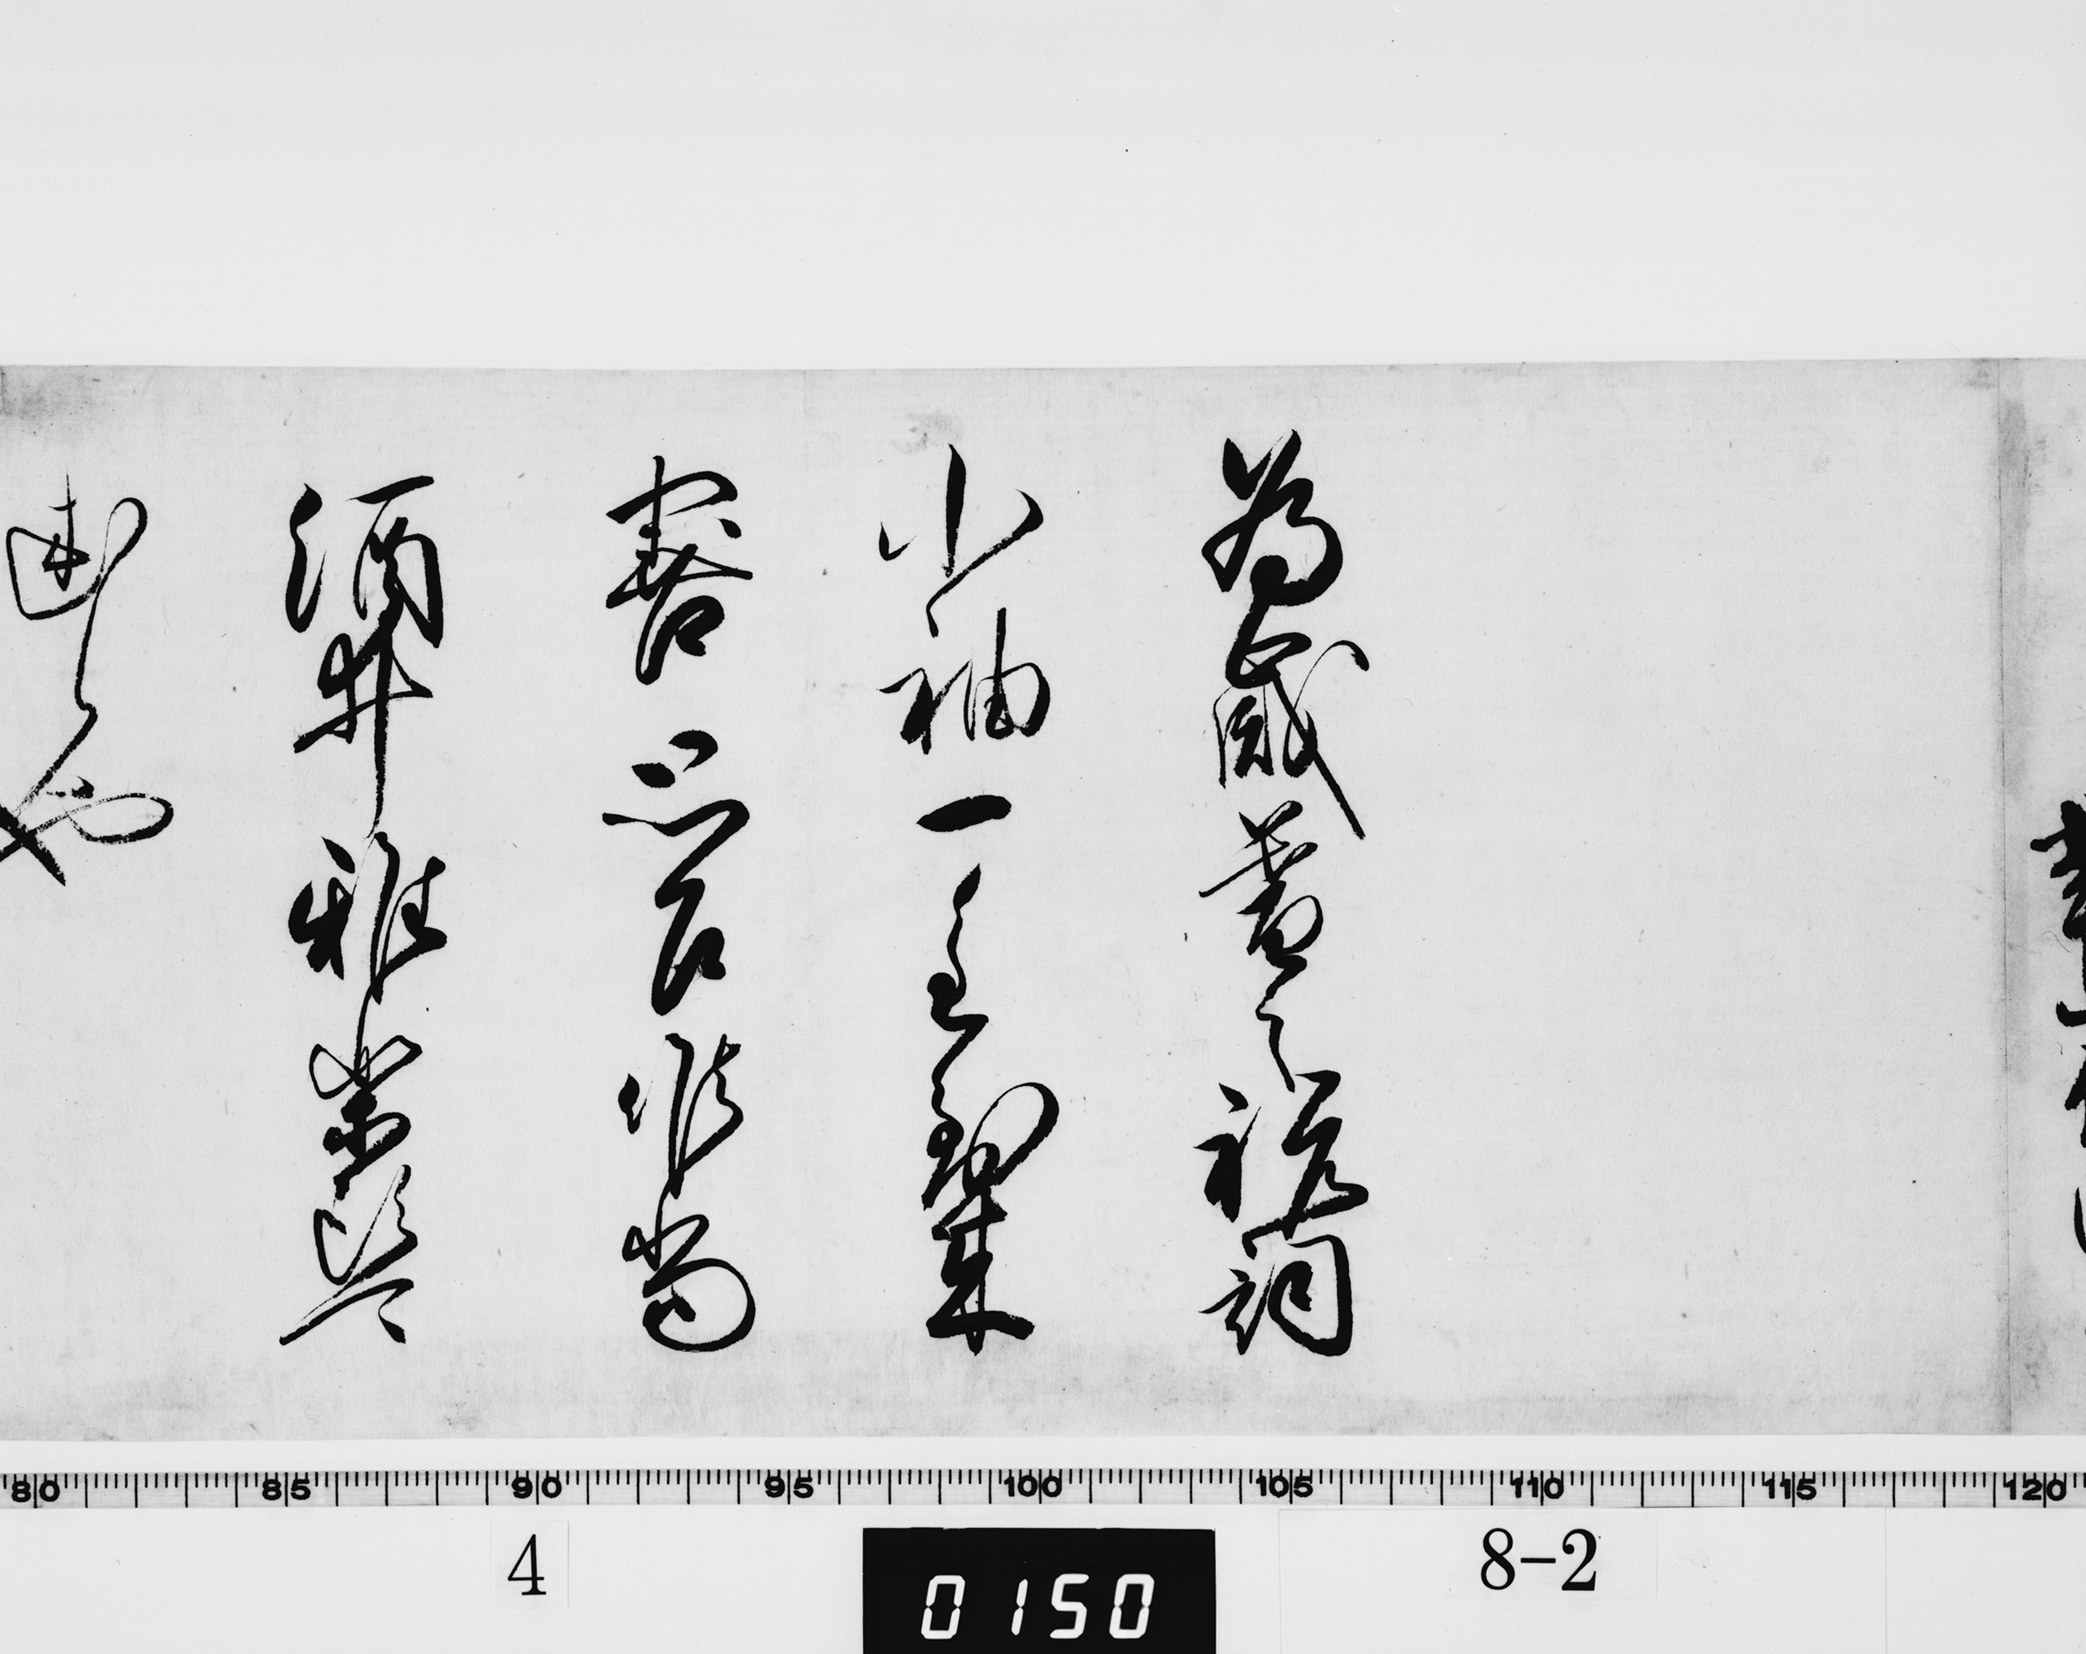 為歳暮之祝詞
小袖一重到来
思召候尚
酒井雅楽頭可
述候也
80 85 90 95 100 105 110 115 120
4 0150 8-2